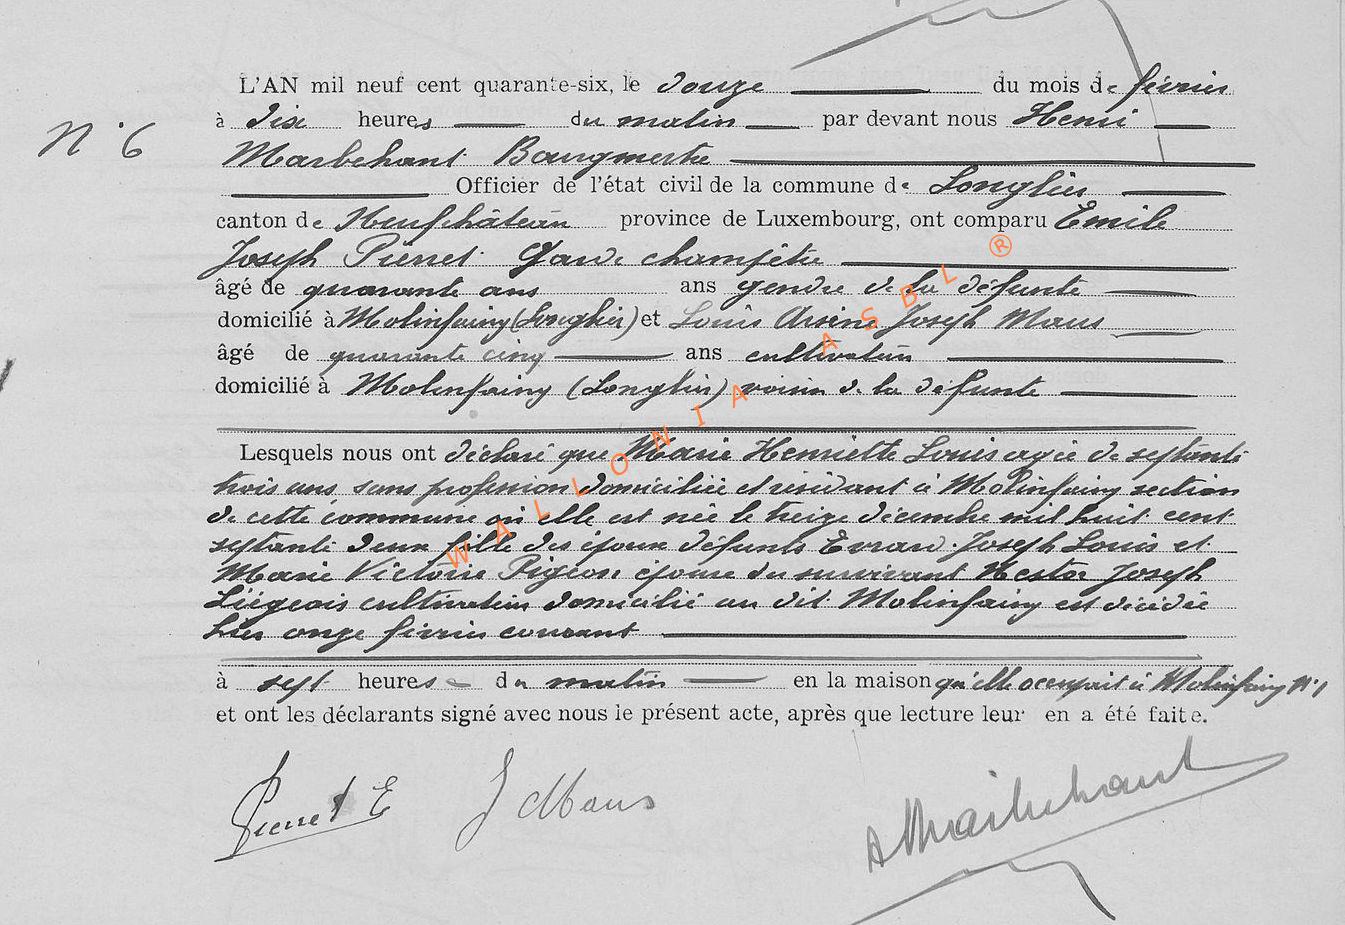 L'AN mil neuf cent quarante-six, le douze du mois de février
N° 6
à dix heures du matin par devant nous Henri
Marbehant Bourgmestre
Officier de l'état civil de la commune de Longlier
canton de Neufchâteau province de Luxembourg, ont comparu Emile
Joseph Pierret Garde champêtre
âgé de quarante ans ans gendre de la défunte
domicilié à Molinfaing (Longlier) et Louis Arsène Joseph Maus
âgé de quarante cinq ans cultivateur
domicilié à Molinfaing (Longlier) voisin de la défunte
Lesquels nous ont déclaré que Marie Henriette Louis agée de septante
trois ans sans profession domiciliée et résidant à Molinfaing section
de cette commune où elle est née le treize décembre mil huit cent
septante deux fille des époux défunts Evrard Joseph Louis et
Marie Victoire Pigeon épouse du survivant Nestor Joseph
Liégeois cultivateur domicilié au dit Molinfaing est décédée
hier onze février courant
à sept heures du matin en la maison qu'elle occupait à Molinfaing N°1
et ont les déclarants signé avec nous le présent acte, après que lecture leur en a été faite.
Pierret E J Maus Marbehant
WALLONIA ASBL ®